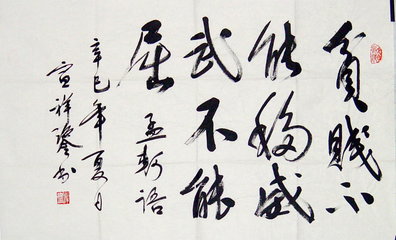 貧賤不
能移威
武不能
屈 孟軻語
辛巳年夏月
宣祥鎏书